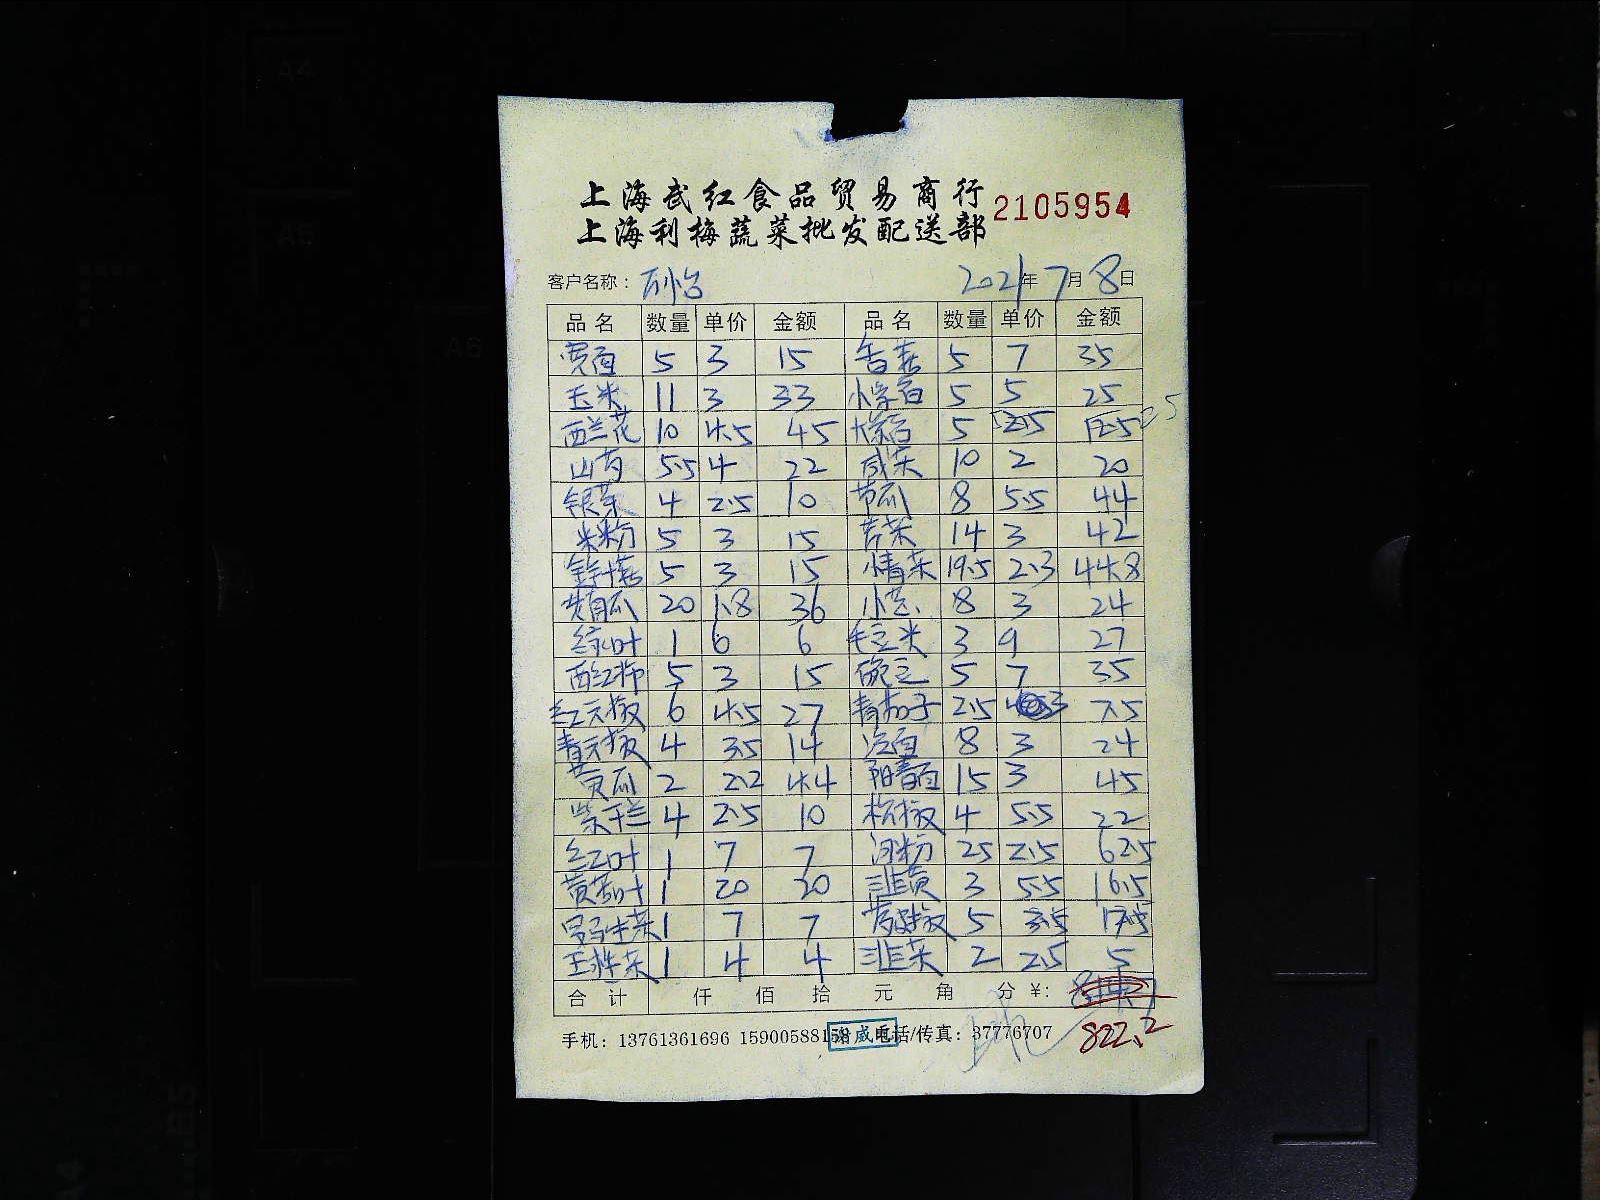 上海武红食品贸易商行
上海利梅蔬菜批发配送部 2105954
客户名称: 2021年7月8日
品名 数量 单价 金额 品名 数量 单价 金额
宽面 5 3 15 香菇 5 7 35
玉米 11 3 33 5 5 25
西兰花 10 4.5 45 5 2.5 12.5
山药 5.5 4 22 咸菜 10 2 20
银芽 4 2.5 10 节瓜 8 5.5 44
米粉 5 3 15 芹菜 14 3 42
金针菇 5 3 15 小青菜 19.5 2.3 44.8
黄瓜 20 1.8 36 小葱 8 3 24
绿叶 1 6 6 毛豆米 3 9 27
西红柿 5 3 15 豌豆 5 7 35
红元椒 6 4.5 27 青茄子 2.5 3 7.5
青元椒 4 3.5 14 8 3 24
黄瓜 2 2.2 4.4 阳春面 15 3 45
紫干兰 4 2.5 10 杭椒 4 5.5 22
红叶 1 7 7 河粉 25 2.5 62.5
黄苦叶 1 20 20 韭黄 3 5.5 16.5
罗马生菜 1 7 7 5 3.5 17.5
1 4 4 韭菜 2 2.5 5
合计 仟 佰 拾 元 角 分 ¥:
822.2
手机: 13761361696 15900588158 电话/传真: 37776707